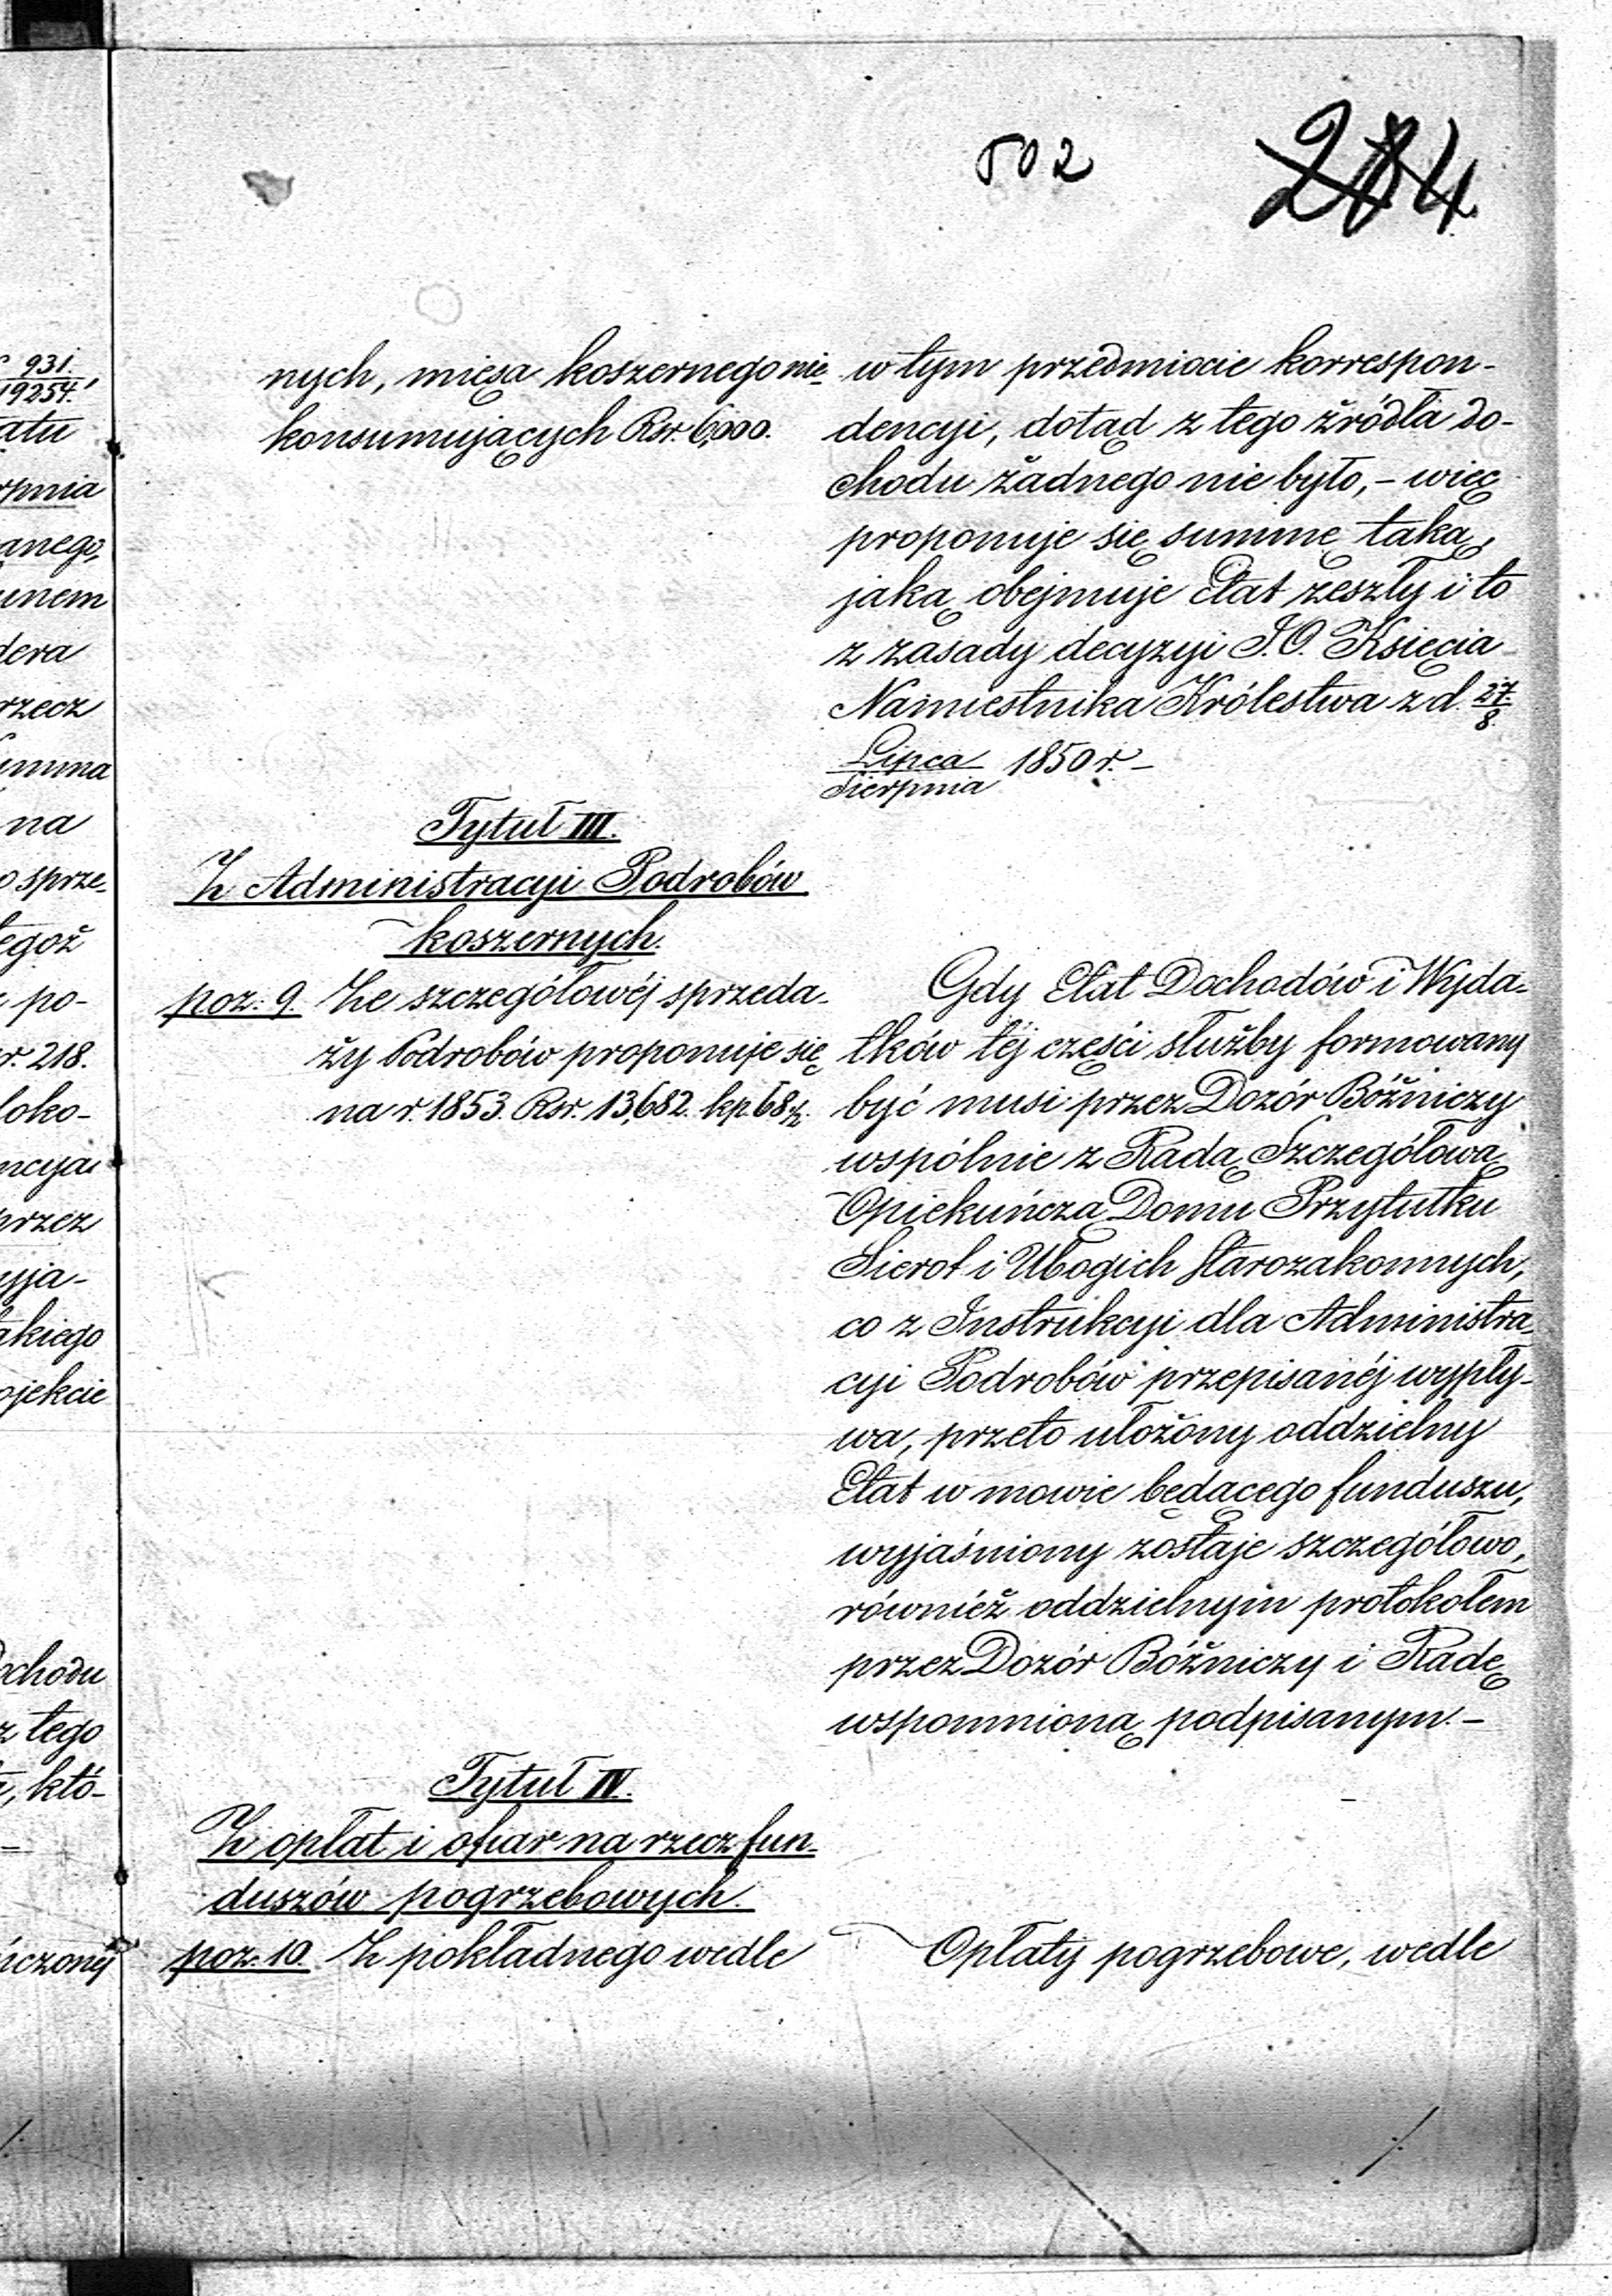 502
284
931.
19254.
atu
rpnia
anego,
unem
dera
rzecz
umma
na
o sprze-
tegoż
po-
r. 218.
loko-
ncya
przez
yja-
akiego
ojekcie
ochodu
z tego
, któ-
ńczony
nych, mięsa koszernego nie-
konsumujących Rsr. 6,000.
Tytuł III.
Z Administracyi Podrobów
koszernych.
poz: 9. Ze szczegółowéj sprzeda-
ży Podrobów proponuje się
na r. 1853. Rsr. 13,682. kp. 68½.
Tytuł IV.
Z opłat i ofiar na rzecz fun-
duszów pogrzebowych.
poz: 10. Z pokładnego wedle
w tym przedmiocie korrespon-
dencyi, dotąd z tego źródła do-
chodu żadnego nie było, – więc
proponuje się summę taką,
jaką obejmuje Etat zeszły i to
z zasady decyzyi J. O. Księcia
Namiestnika Królestwa z d. 27./8.
Lipca/Sierpnia 1850 r. –
Gdy Etat Dochodów i Wyda-
tków téj części służby formowany
być musi przez Dozór Bóżniczy
wspólnie z Radą Szczegółową
Opiekuńczą Domu Przytułku
Sierot i Ubogich Starozakonnych,
co z Instrukcyi dla Administra-
cyi Podrobów przepisanéj wypły-
wa, przeto ułożony oddzielny
Etat w mowie będącego funduszu,
wyjaśniony zostaje szczegółowo,
również oddzielnym protokołem
przez Dozór Bóżniczy i Radę
wspomnioną podpisanym. –
Opłaty pogrzebowe, wedle